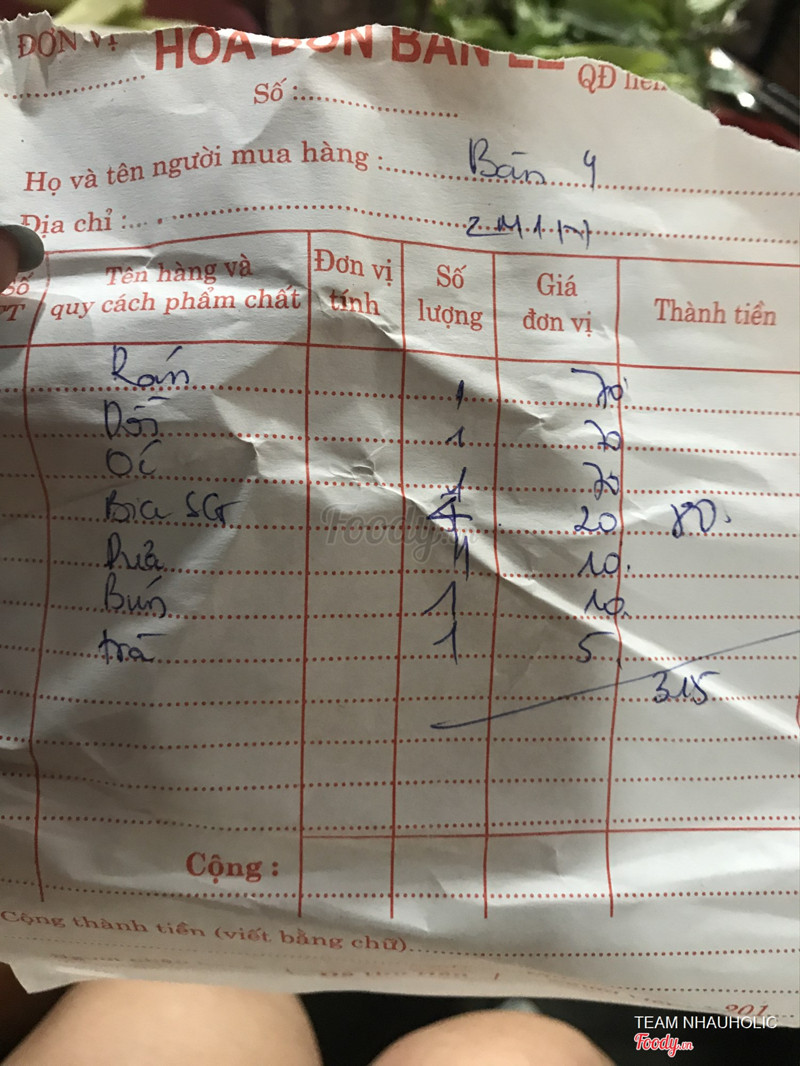 ĐƠN VỊ HÓA ĐƠN BÁN LẺ
QĐ liên
Số :
Họ và tên người mua hàng : Bàn 9
Địa chỉ :
Số TT Tên hàng và quy cách phẩm chất Đơn vị tính Số lượng Giá đơn vị Thành tiền
Rán 1 70
Dồi 1 70
Ốc 1 70
Bia SG 4 20 80
Dưa 1 10
Bún 1 10
trà 1 5
315
Cộng :
Cộng thành tiền (viết bằng chữ)
201
Foody.vn
TEAM NHAUHOLIC
Foody.vn